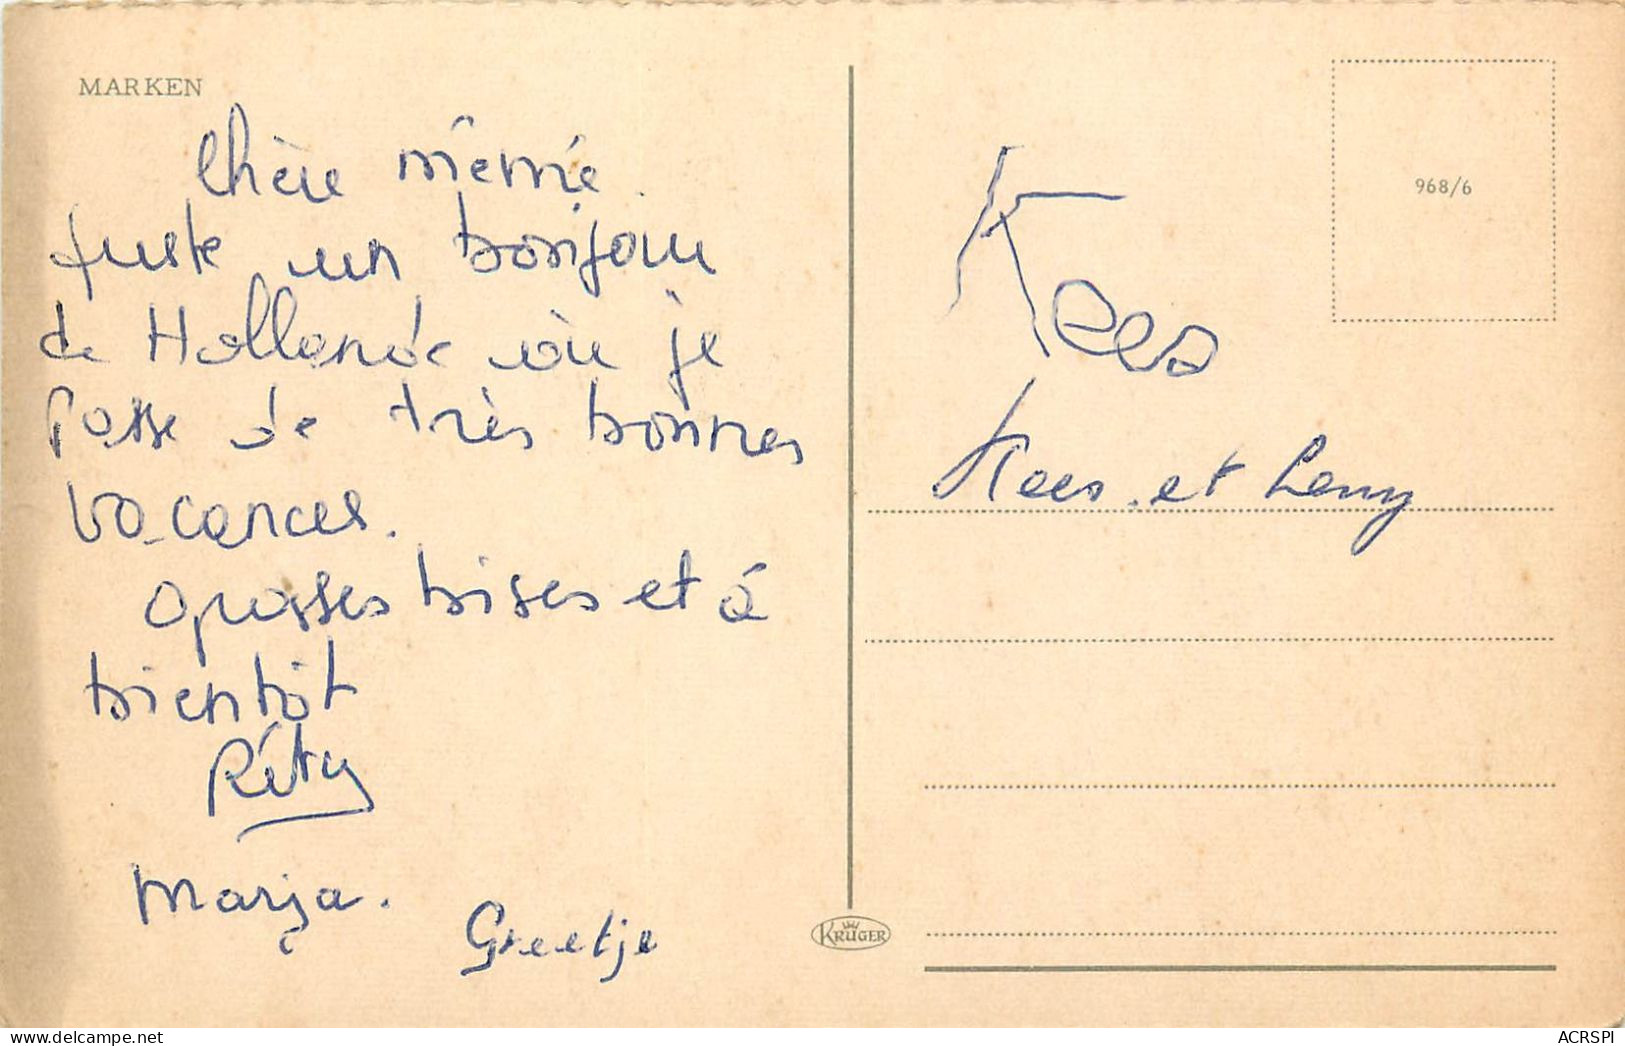 MARKEN
Chère mémé.
juste un bonjour
de Hollande où je
passe de très bonnes
vacances.
grosses bises et à
bientôt
Marja.
Greetje
KRÜGER
968/6
Kees
Kees et Leny
ACRSPI